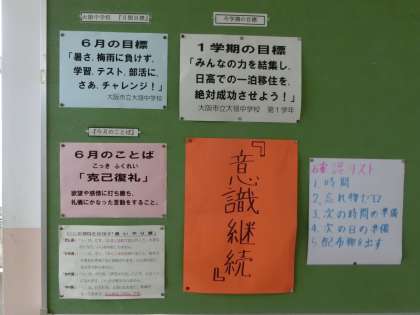 大領中学校 『月別目標』
6月の目標
「暑さ、梅雨に負けず、
学習、テスト、部活に、
さあ、チャレンジ！」
大阪市立大領中学校
今学期の目標
1学期の目標
「みんなの力を結集し、
日高での一泊移住を、
絶対成功させよう！」
大阪市立大領中学校 第1学年
『今月のことば』
6月のことば
こっき ふくれい
「克己復礼」
欲望や感情に打ち勝ち、
礼儀にかなった言動をすること。
『意識継続』
確認リスト
1. 時間
2. 忘れ物ゼロ
3. 次の時間の準備
4. 次の日の準備
5. 配布物を出す